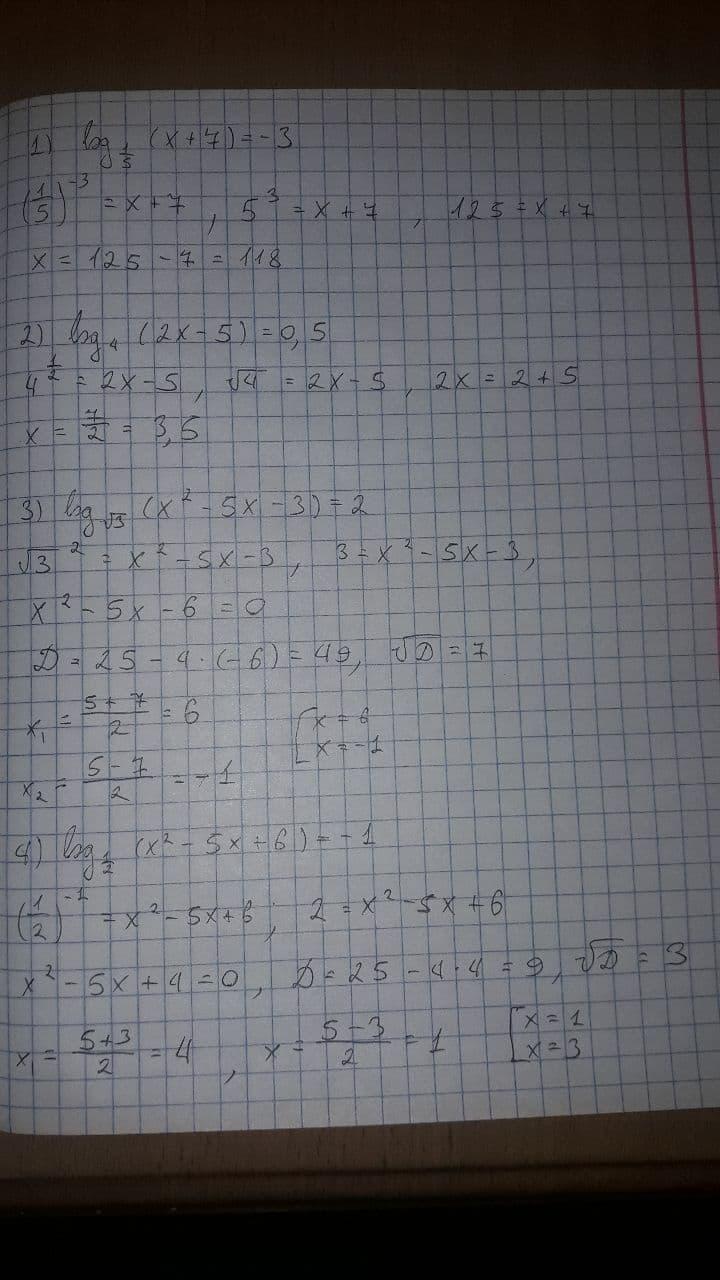 1) log_{1/5} (x+7) = -3
(1/5)^{-3} = x+7 , 5^3 = x+7 , 125 = x+7
x = 125 - 7 = 118
2) log_4 (2x-5) = 0,5
4^{1/2} = 2x-5 , √4 = 2x-5 , 2x = 2+5
x = 7/2 = 3,5
3) log_{√3} (x^2 - 5x - 3) = 2
√3^2 = x^2 - 5x - 3 , 3 = x^2 - 5x - 3 ,
x^2 - 5x - 6 = 0
D = 25 - 4·(-6) = 49, √D = 7
x_1 = (5+7)/2 = 6 [x = 6
x_2 = (5-7)/2 = -1 [x = -1
4) log_{1/2} (x^2 - 5x + 6) = -1
(1/2)^{-1} = x^2 - 5x + 6 , 2 = x^2 - 5x + 6
x^2 - 5x + 4 = 0 , D = 25 - 4·4 = 9 , √D = 3
x_1 = (5+3)/2 = 4 , x = (5-3)/2 = 1 [x = 1
[x = 3